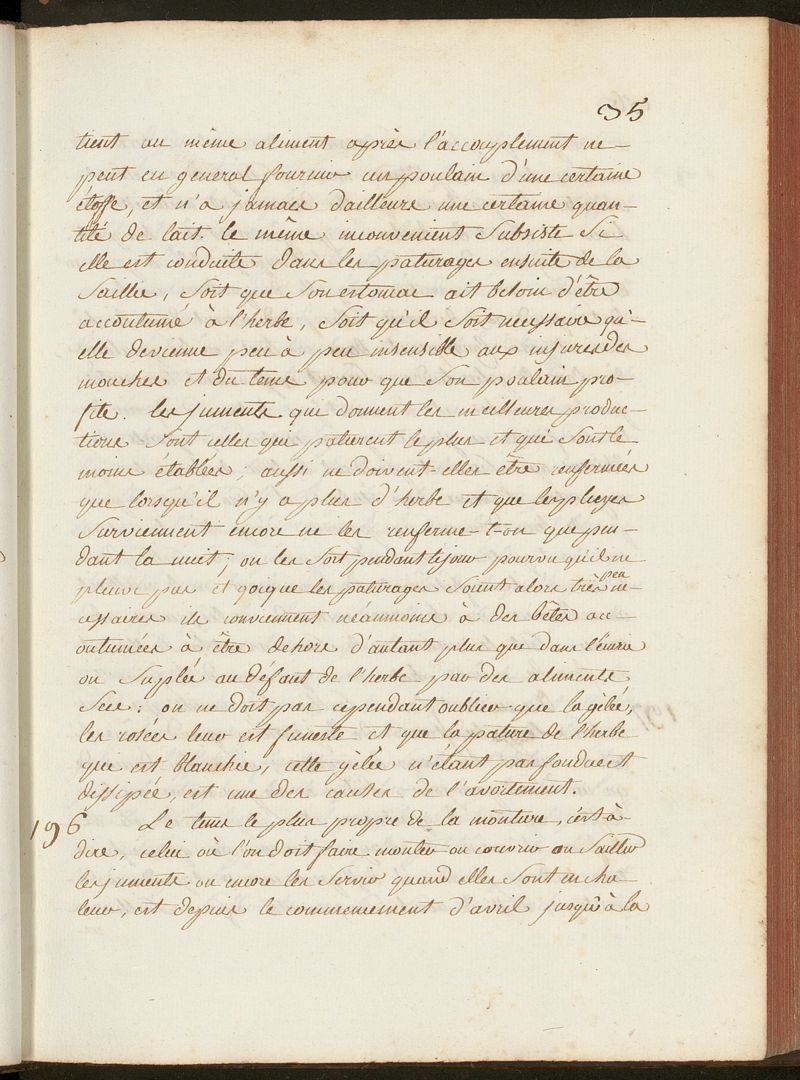 35
tient au même aliment après l'accouplement ne-
peut en general fournir un poulain d'une certaine
étoffe, et n'a jamais d'ailleurs une certaine quan-
tité de lait. le même inconvenient Subsiste Si
elle est conduite dans les paturages ensuite de la
Saillie, Soit que Son estomac ait besoin d'être
accoutumé à l'herbe, Soit qu'il Soit necessaire qu'-
elle devienne peu à peu insensible aux injures des
mouches et du tems pour que Son poulain pro-
fite. les juments qui donnent les meilleures produc-
tions Sont celles qui paturent le plus et qui Sont le
moins établées; aussi ne doivent-elles être renfermées
que lorsqu'il n'y a plus d'herbe et que les pluyes
Surviennent encore ne les renferme-t-on que pen-
dant la nuit; on les Sort pendant le jour pourvu qu'il ne
pleuve pas et qoique les paturages Soient alors très peu ne-
cessaires ils conviennent néanmoins à des bêtes ac-
coutumées à être dehors d'autant plus que dans l'écurie
on Suplée au défaut de l'herbe par des aliments
Secs: on ne doit pas cependant oublier que la gêlée,
les rosées leur est funeste et que la pature de l'herbe
qui est blanchie, cette gêlée n'étant pas fondue et
dissipée, est une des causes de l'avortement.
196 Le tems le plus propre de la monture, c'est-à-
dire, celui où l'on doit faire monter ou couvrir ou Saillir
les juments ou encore les Servir quand elles Sont en cha
leur, est depuis le commencement d'avril jusqu'à la